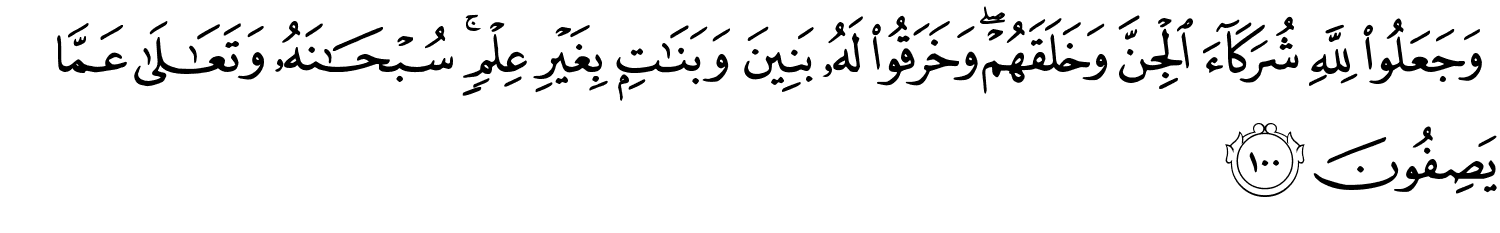 وَجَعَلُوا۟ لِلَّهِ شُرَكَآءَ ٱلْجِنَّ وَخَلَقَهُمْ ۖ وَخَرَقُوا۟ لَهُۥ بَنِينَ وَبَنَـٰتٍۭ بِغَيْرِ عِلْمٍۢ ۚ سُبْحَـٰنَهُۥ وَتَعَـٰلَىٰ عَمَّا
يَصِفُونَ ١٠٠